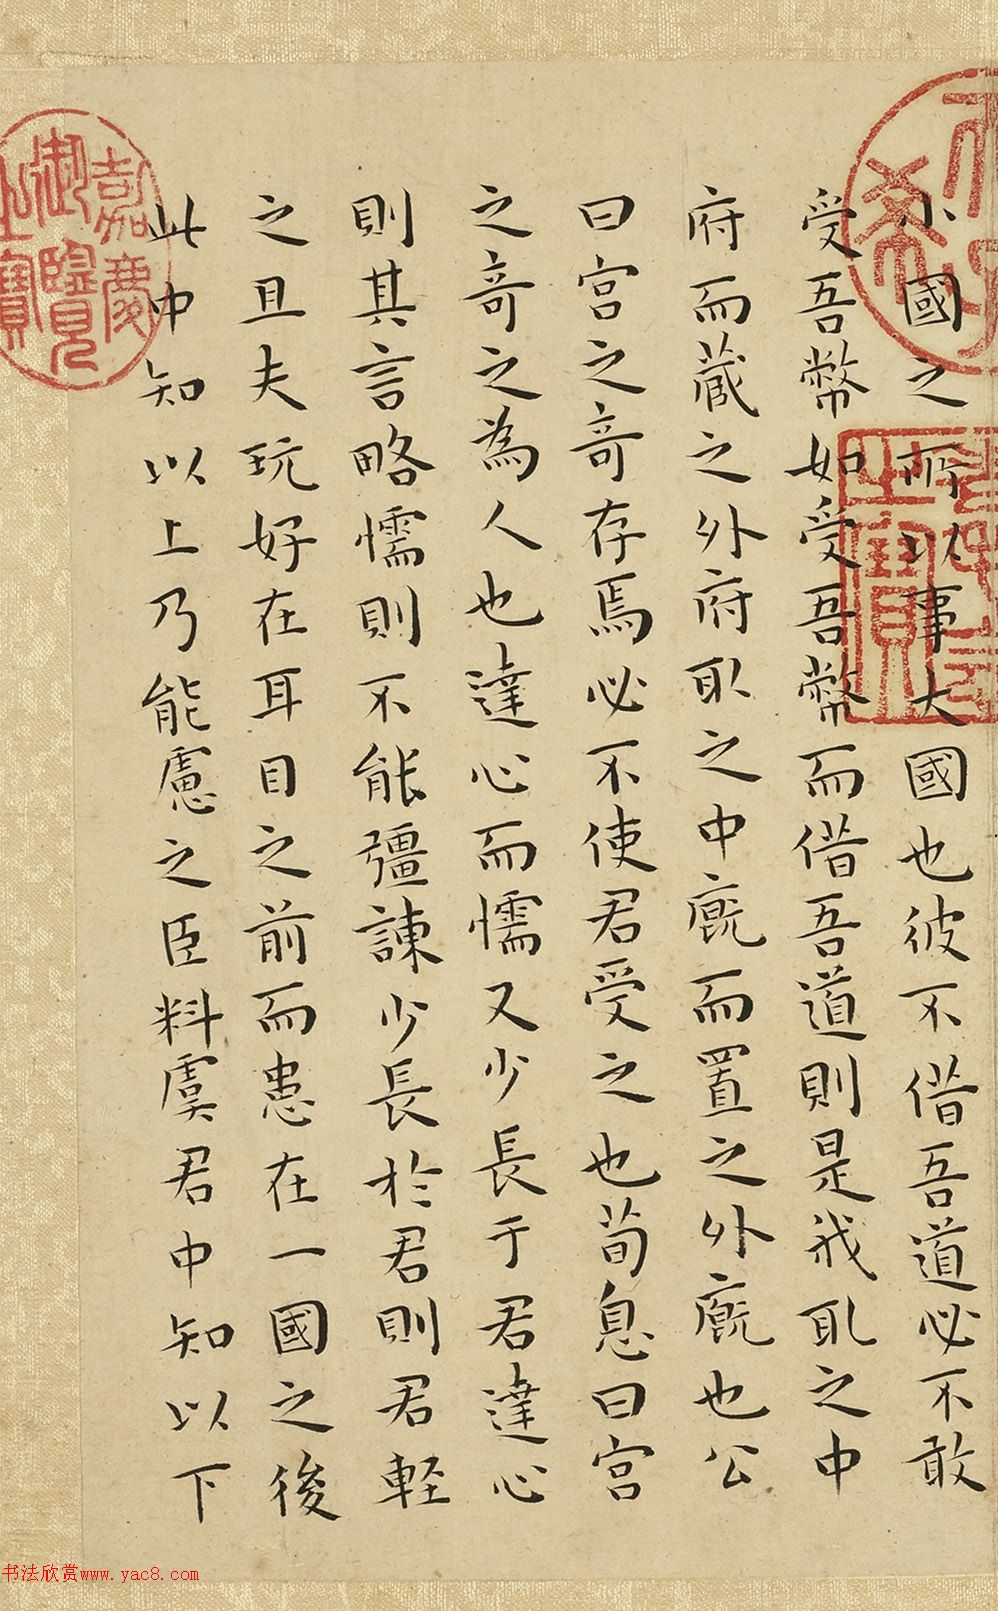 小國之所以事大國也彼不借吾道必不敢
受吾幣如受吾幣而借吾道則是我取之中
府而藏之外府取之中廐而置之外廐也公
曰宮之奇存焉必不使君受之也荀息曰宮
之奇之為人也達心而懦又少長于君達心
則其言略懦則不能彊諫少長於君則君輕
之且夫玩好在耳目之前而患在一國之後
此中知以上乃能慮之臣料虞君中知以下
嘉慶御覽之寶
书法欣赏www.yac8.com